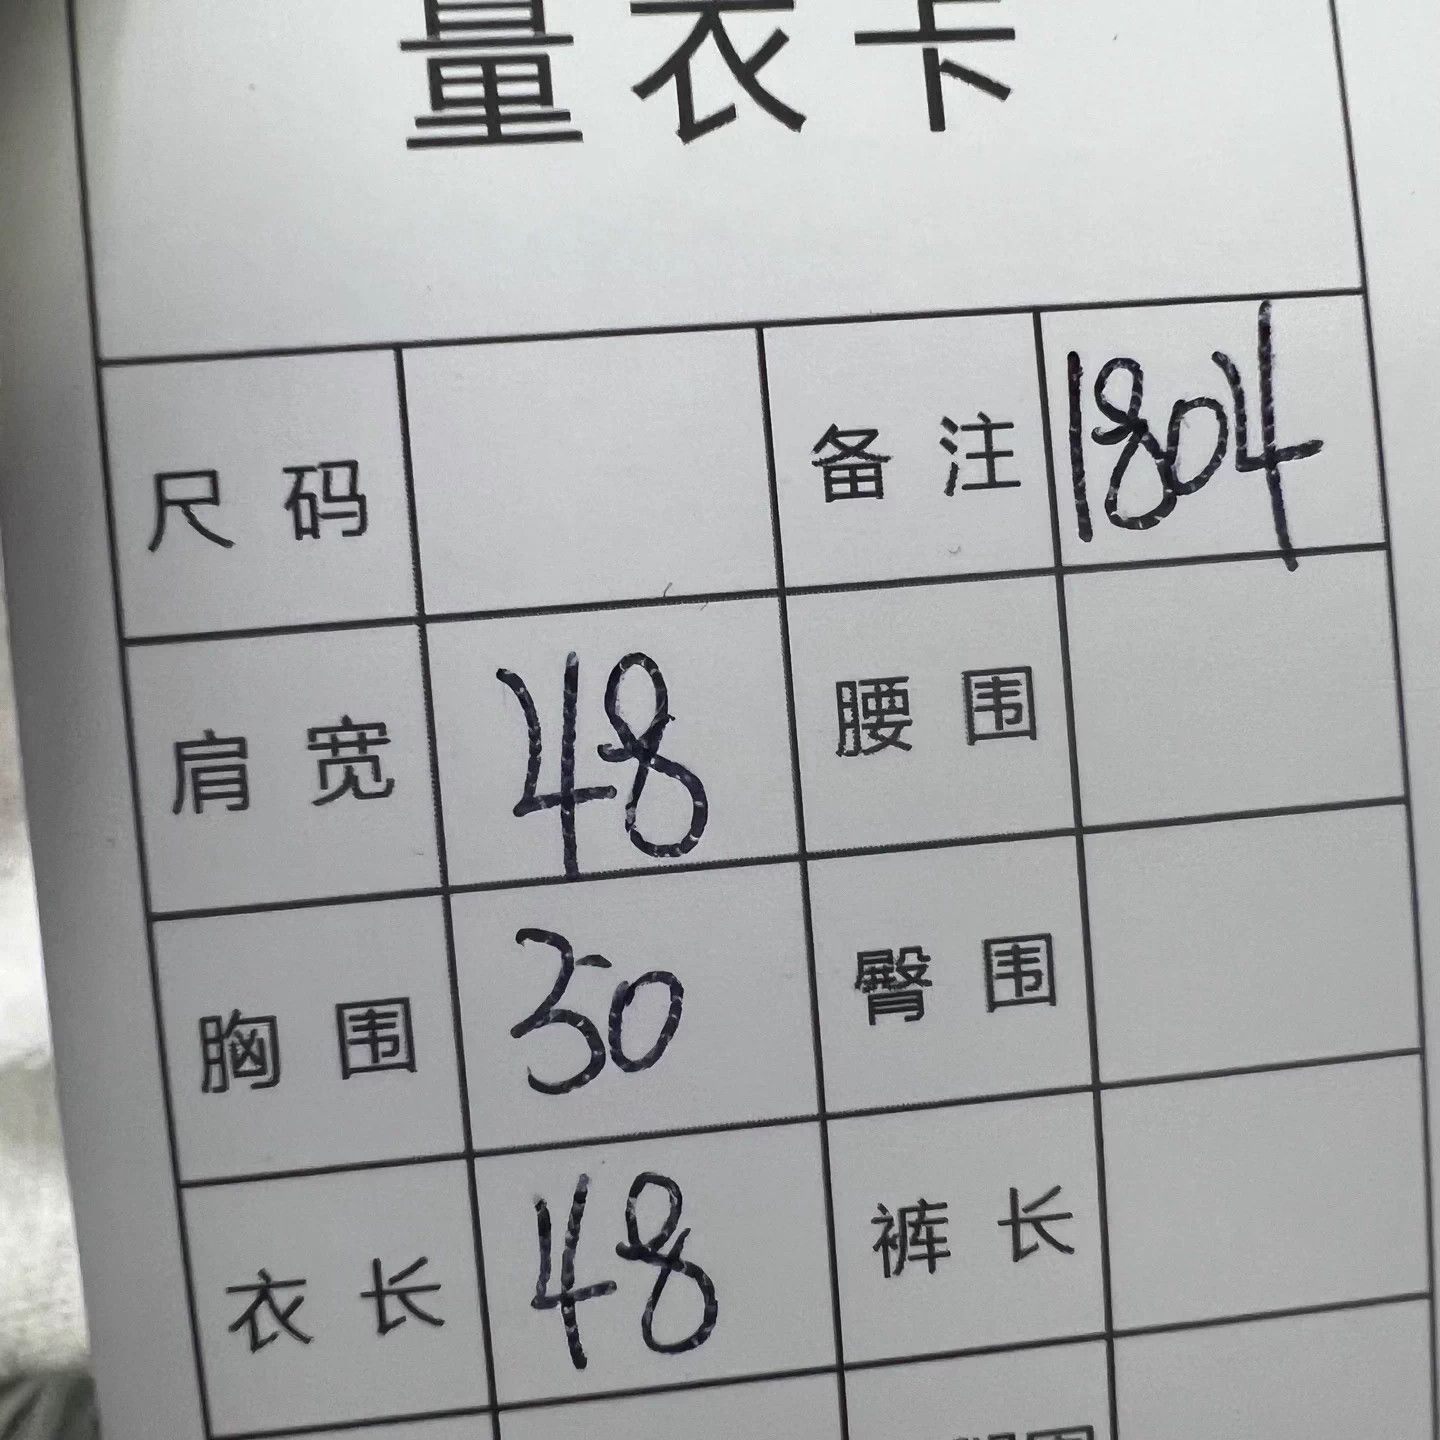 量衣卡
尺码 备注 1804
肩宽 48 腰围
胸围 50 臀围
衣长 48 裤长